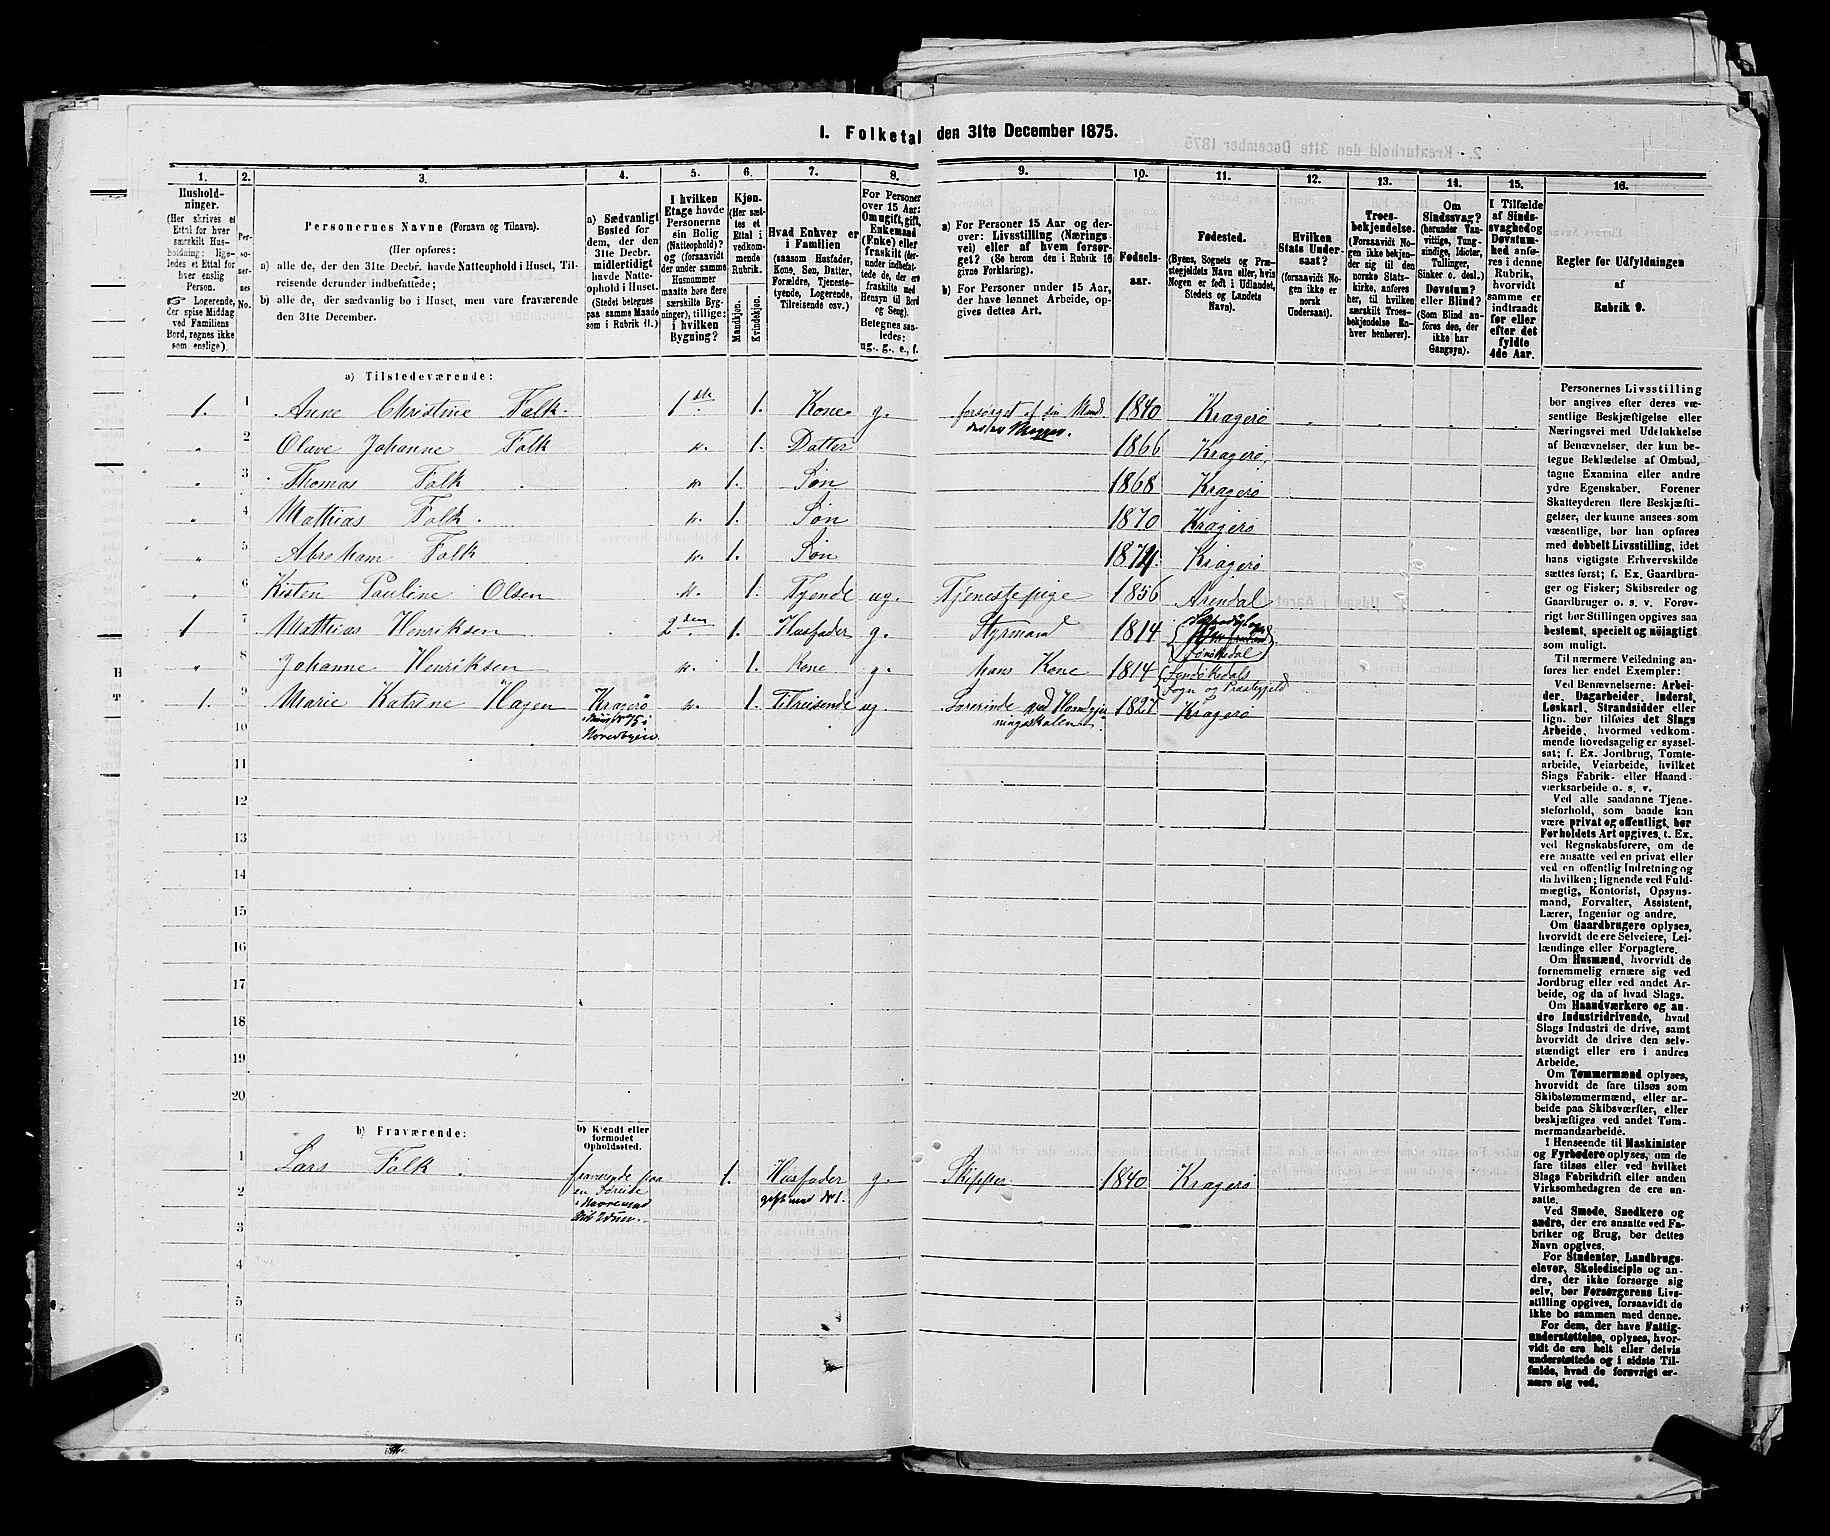 1. Folketal den 31te December 1875.
1.
2.
3.
4.
5.
6.
7.
8.
9.
10.
11.
12.
13.
14.
15.
16.
Husholdninger.
(Her skrives et
Ettal for hver
særskilt Husholdning;
ligeledes et Ettal for
hver enslig
Person.
Logerende,
der spise Middag
ved Familiens
Bord, regnes ikke
som enslige).
Personernes
No.
Personernes Navne (Fornavn og Tilnavn).
(Her opføres:
a) alle de, der den 31te Decbr. havde Natteophold i Huset, Tilreisende
derunder indbefattede;
b) alle de, der sædvanlig bo i Huset, men vare fraværende
den 31te December.
a) Sædvanligt
Bosted for
dem, der den
31te Decbr.
midlertidigt
havde Natteophold
i Huset.
(Stedet betegnes
paa samme Maade
som i Rubrik 11.)
I hvilken
Etage havde
Personerne
sin Bolig
(Natteophold)?
og (forsaavidt
der under samme
Husnummer
maatte høre flere
særskilte Bygninger),
tillige:
i hvilken
Bygning?
Kjøn.
(Her sættes
et
Ettal i
vedkommende
Rubrik.
Mandkjøn.
Kvindekjøn.
Hvad Enhver er
i Familien
(saasom Husfader,
Kone, Søn, Datter,
Forældre, Tjenestetyende,
Logerende,
Tilreisende osv.)
For Personer
over 15 Aar:
Om ugift, gift,
Enkemand
(Enke) eller
fraskilt (derunder
indbefattede
de, der ere
fraskilte med
Hensyn til Bord
og Seng).
Betegnes saaledes:
ug., g., e., f.
a) For Personer 15 Aar og derover:
Livsstilling (Næringsvei)
eller af hvem forsørget?
(Se herom den i Rubrik 16
givne Forklaring).
b) For Personer under 15 Aar,
der have lønnet Arbeide, opgives
dettes Art.
Fødselsaar.
Fødested.
(Byens, Sognets og Præstegjeldets
Navn eller, hvis
Nogen er født i Udlandet,
Stedets og Landets
Navn).
Hvilken
Stats Undersaat?
(forsaavidt Nogen
ikke er
norsk
Undersaat).
Troesbekjendelse.
(Forsaavidt Nogen
ikke bekjender
sig til den
norske Statskirke,
anføres
her, til hvilken
særskilt Troesbekjendelse
Enhver
henhører).
Om
Sindssvag?
(herunder Vanvittige,
Tungsindige,
Idioter,
Tullinger,
Sinker o. desl.)
Døvstum?
eller Blind?
(Som Blind anføres
den, der
ikke har
Gangsyn).
I Tilfælde
af Sindssvaghed
og
Døvstumhed
anføres
i denne
Rubrik,
hvorvidt
samme er
indtraadt
før eller
efter det
fyldte
4de Aar.
Regler for Udfyldningen
af
Rubrik 9.
a) Tilstedeværende:
1. 1 Anne Christine Falk. 1 1. Kone g. forsørget af sin Mand 1840 Kragerø
" 2 Olave Johanne Falk " 1. Datter 1866 Kragerø.
" 3 Thomas Falk " 1. Søn 1868 Kragerø
" 4 Mathias Falk. " 1. Søn 1870 Kragerø
" 5 Abraham Falk " 1. Søn Kragerø
" 6 Kisten Pauline Olsen " 1. Tjende ug. Tjenestepige 1856 Arendal
1 7 Mathias Henriksen 2den 1. Husfader g. Styrmand 1814
" 8 Johanne Henriksen " 1. Kone g. hans Kone 1814
Sogn og Præstegjeld
1. 9 Marie Katrine Hagen Kragerø " 1. Tilreisende ug. 1827 Kragerø
10
11
12
13
14
15
16
17
18
19
20
b) Fraværende:
b) Kjendt eller
formodet
Opholdssted.
1 Lars Falk fraværende paa 1. Husfader g. Skipper 1840 Kragerø
2 en
3
4
5
6
Personernes Livsstilling
bør angives efter deres væsentlige
Beskjæftigelse eller
Næringsvei med Udelukkelse
af Benævnelser, der kun betegne
Beklædelse af Ombud,
tagne Examina eller andre
ydre Egenskaber. Forener
Skatteyderen flere Beskjæftigelser,
der kunne ansees som
væsentlige, bør han opføres
med dobbelt Livsstilling, idet
hans vigtigste Erhvervskilde
sættes først; f. Ex. Gaardbruger
og Fisker; Skibsreder og
Gaardbruger o. s. v. Forøvrigt
bør Stillingen opgives saa
bestemt, specielt og nøiagtigt
som muligt.
Til nærmere Veiledning anføres
her endel Exempler:
Ved Benævnelserne: Arbeider,
Dagarbeider, Inderst,
Løskarl, Strandsidder eller
lign. bør tilføies det Slags
Arbeide, hvormed vedkommende
hovedsagelig er sysselsat;
f. Ex. Jordbrug, Tomtearbeide,
Veiarbeide, hvilket
Slags Fabrik- eller Haandværksarbeide
o. s. v.
Ved alle saadanne Tjenesteforhold,
som baade kan
være privat og offentligt, bør
Forholdets Art opgives, t. Ex.
ved Regnskabsførere, om de
ere ansatte ved en privat eller
ved en offentlig Indretning og
da hvilken; lignende ved Fuldmægtig,
Kontorist, Opsynsmand,
Forvalter, Assistent,
Lærer, Ingeniør og andre.
Om Gaardbrugere oplyses,
hvorvidt de ere Selveiere, Leilændinge
eller Forpagtere.
Om Husmænd, hvorvidt de
fornemmelig ernære sig ved
Jordbrug eller ved andet Arbeide,
og da af hvad Slags.
Om Haandværkere og andre
Industridrivende, hvad
Slags Industri de drive, samt
hvorvidt de drive den selvstændigt
eller ere i andres
Arbeide.
Om Tømmermænd oplyses,
hvorvidt de fare tilsøs som
Skibstømmermænd, eller arbeide
paa Skibsværfter, eller
beskjæftiges ved andet Tømmermandsarbeide.
I Henseende til Maskinister
og Fyrbødere oplyses, om de
fare tilsøs eller ved hvilket
Slags Fabrikdrift eller anden
Virksomhed de ere ansatte.
Ved Smede, Snedkere og
andre, der ere ansatte ved Fabriker
og Brug, bør dettes
Navn opgives.
For Studenter, Landbrugselever,
Skoledisciple og andre,
der ikke forsørge sig
selv, bør Forsørgerens Livsstilling
opgives, forsaavidt de
ikke bo sammen med denne.
For dem, der have Fattigunderstøttelse,
oplyses, hvorvidt
de ere helt eller delvis
understøttede og i sidste Tilfælde,
hvad de forøvrigt ernære
sig ved.